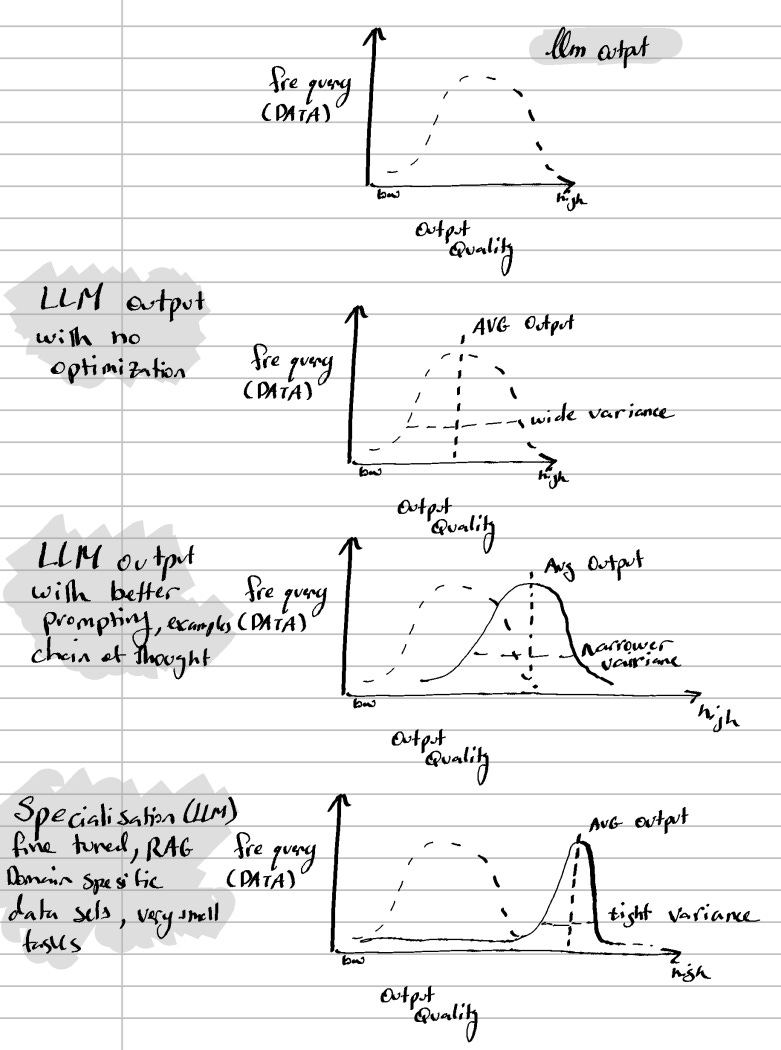 llm output
fre query
(DATA)
low
high
Output
Quality
LLM output
with no
optimization
AVG Output
fre query
(DATA)
wide variance
low
high
Output
Quality
LLM output
with better
prompting, examples
chain of thought
Avg Output
fre query
(DATA)
narrower
vairiane
low
high
Output
Quality
Specialisation (LLM)
fine tuned, RAG
Domain spesitic
data sets, very small
tasks
AVG Output
fre query
(DATA)
tight variance
low
high
Output
Quality